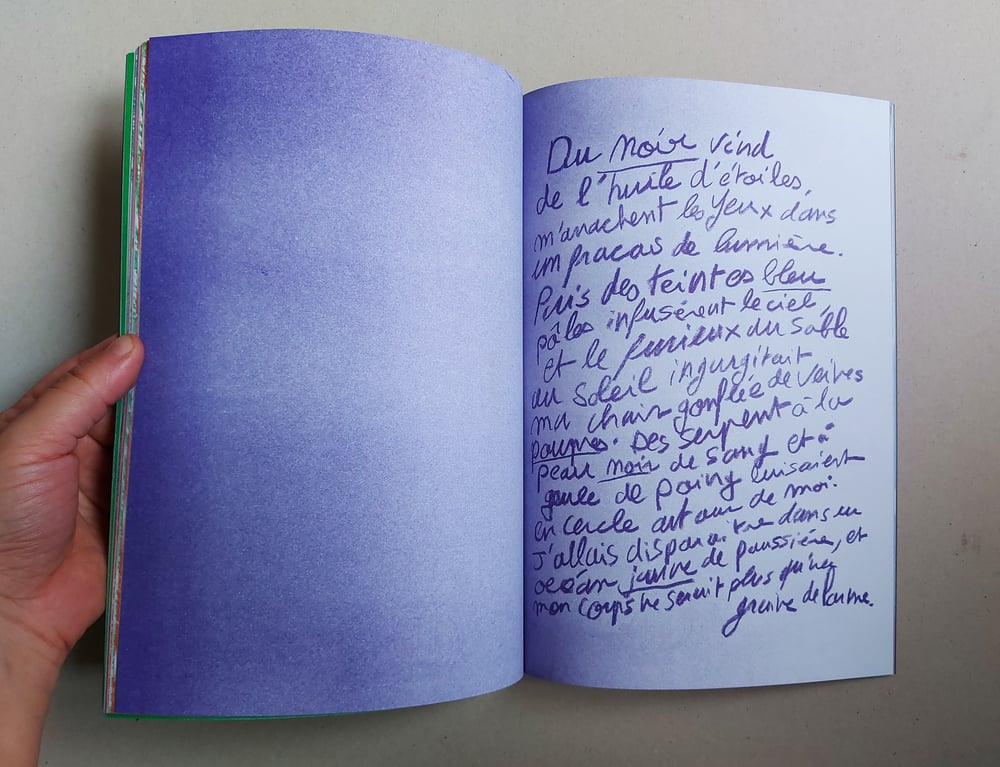 Du noir vind
de l'huile d'étoiles,
m'arrachent les yeux dans
un fracas de lumière.
Puis des teintes bleu
pâles infusèrent le ciel,
et le furieux du sable
au soleil ingurgitait
ma chair gonflée de veines
pourpres. Des serpent à la
peau noir de sang et à
gueule de poing luisaient
en cercle autour de moi.
J'allais disparaitre dans un
océan jaune de poussière, et
mon corps ne serait plus qu'une
graine de larme.